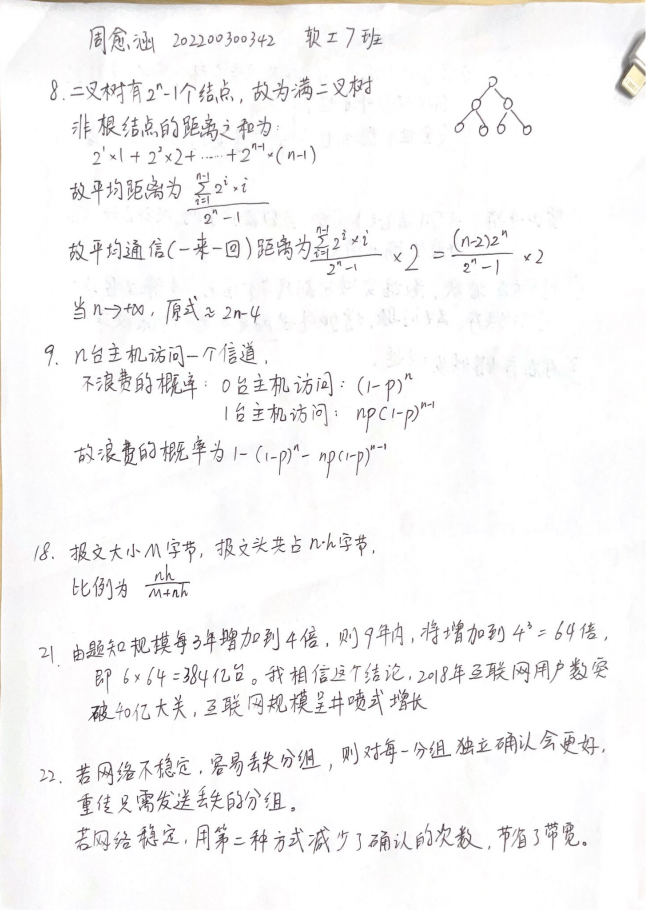 周愈涵 202200300342 软工7班
8. 二叉树有2ⁿ-1个结点，故为满二叉树
非根结点的距离之和为：
2¹×1 + 2²×2 + …… + 2ⁿ⁻¹×(n-1)
故平均距离为 (∑_{i=1}^{n-1} 2ⁱ×i)/(2ⁿ-1)
故平均通信(一来一回)距离为 (∑_{i=1}^{n-1} 2ⁱ×i)/(2ⁿ-1) ×2 = ((n-2)2ⁿ)/(2ⁿ-1) ×2
当n→+∞，原式≈2n-4
9. n台主机访问一个信道，
不浪费的概率：0台主机访问：(1-p)ⁿ
1台主机访问：np(1-p)ⁿ⁻¹
故浪费的概率为 1-(1-p)ⁿ-np(1-p)ⁿ⁻¹
18. 报文大小M字节，报文头共占n·h字节，
比例为 nh/(M+nh)
21. 由题知规模每3年增加到4倍，则9年内，将增加到4³=64倍，
即6×64=384亿台。我相信这个结论，2018年互联网用户数突
破40亿大关，互联网规模呈井喷式增长
22. 若网络不稳定，容易丢失分组，则对每一分组独立确认会更好，
重传只需发送丢失的分组。
若网络稳定，用第二种方式减少了确认的次数，节省了带宽。